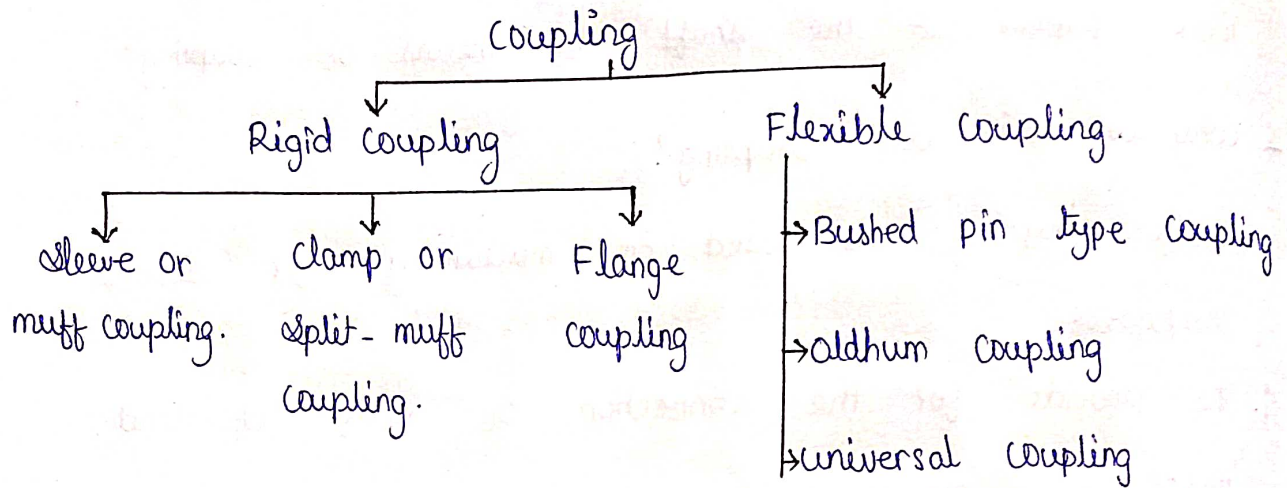 Coupling
Rigid Coupling
Flexible Coupling.
Sleeve or
muff coupling.
Clamp or
Split-muff
Coupling.
Flange
coupling
Bushed pin type Coupling
Oldhum Coupling
Universal Coupling